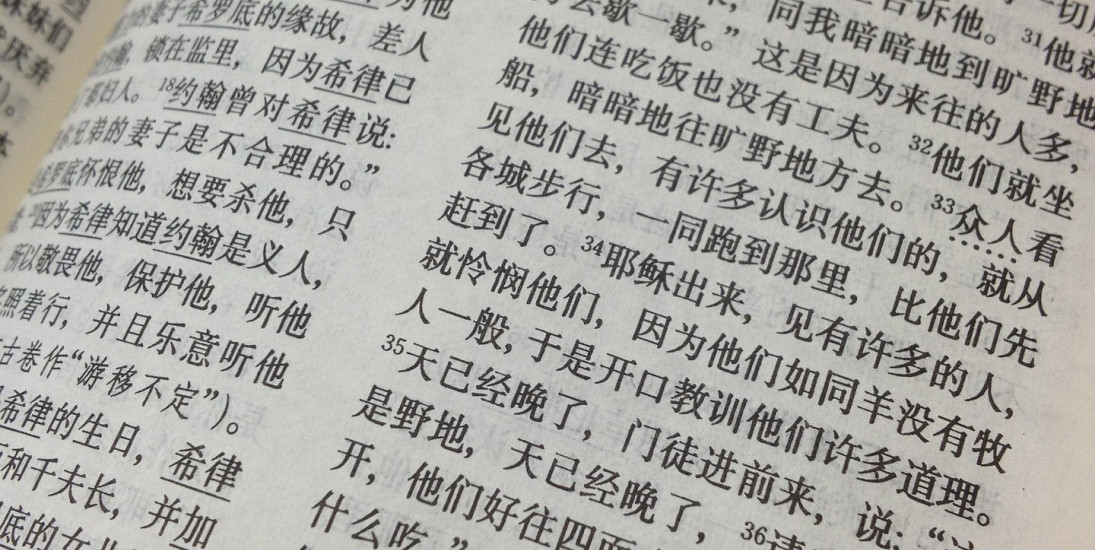 妹妹们
厌弃
为他
的妻子希罗底的缘故，差人
锁在监里，因为希律己
妇人。18约翰曾对希律说：
兄弟的妻子是不合理的。”
罗底怀恨他，想要杀他，只
因为希律知道约翰是义人，
所以敬畏他，保护他，听他
照着行，并且乐意听他
古卷作“游移不定”）。
希律的生日，希律
和千夫长，并加
底的女儿
一切
告诉他。31他就
同我暗暗地到旷野地
去歇一歇。”这是因为来往的人多，
他们连吃饭也没有工夫。32他们就坐
船，暗暗地往旷野地方去。33众人看
见他们去，有许多认识他们的，就从
各城步行，一同跑到那里，比他们先
赶到了。34耶稣出来，见有许多的人，
就怜悯他们，因为他们如同羊没有牧
人一般，于是开口教训他们许多道理。
35天已经晚了，门徒进前来，说：“
是野地，天已经晚了，36请
开，他们好往四面
什么吃。”